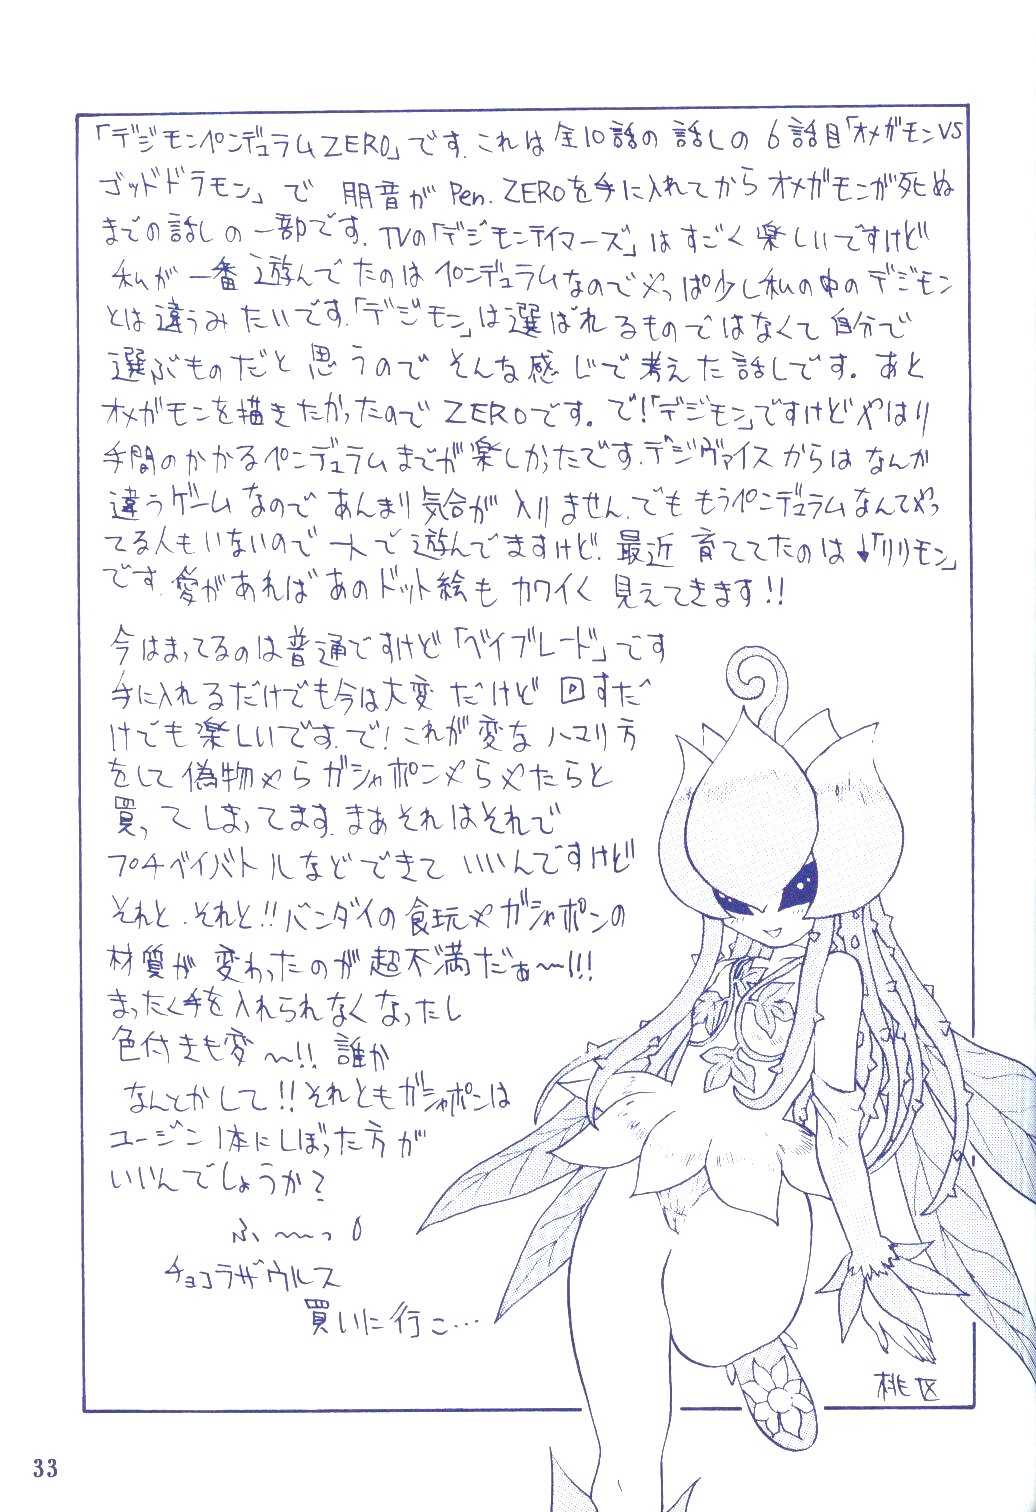 「デジモンペンデュラムZERO」です.これは全10話の話しの6話目「オメガモンVS
ゴッドドラモン」で 朋音がPen.ZEROを手に入れてからオメガモンが死ぬ
までの話しの一部です.TVの「デジモンテイマーズ」はすごく楽しいですけど
私が一番遊んでたのはペンデュラムなのでやっぱ少し私の中のデジモン
とは違うみたいです.「デジモン」は選ばれるものではなくて自分で
選ぶものだと思うのでそんな感じで考えた話しです。あと
オメガモンを描きたかったのでZEROです。で!「デジモン」ですけどやはり
手間のかかるペンデュラムまでが楽しかったです.デジヴァイスからはなんか
違うゲームなのであんまり気合が入りません.でももうペンデュラムなんてやっ
てる人もいないので一人で遊んでますけど.最近育ててたのは↓「リリモン」
です.愛があればあのドット絵もカワイく見えてきます!!
今はまってるのは普通ですけど「ベイブレード」です
手に入れるだけでも今は大変だけど回すだ
けでも楽しいです.で!これが変なハマり方
をして偽物やらガシャポンやらやたらと
買ってしまってます.まあそれはそれで
プチベイバトルなどできていいんですけど
それと.それと!!バンダイの食玩やガシャポンの
材質が変わったのが超不満だぁ〜!!!
まったく手を入れられなくなったし
色付きも変〜!!誰か
なんとかして!!それともガシャポンは
ユージン1本にしぼった方が
いいんでしょうか?
ふ〜〜っ
チョコラザウルス
買いに行こ…
桃区
33